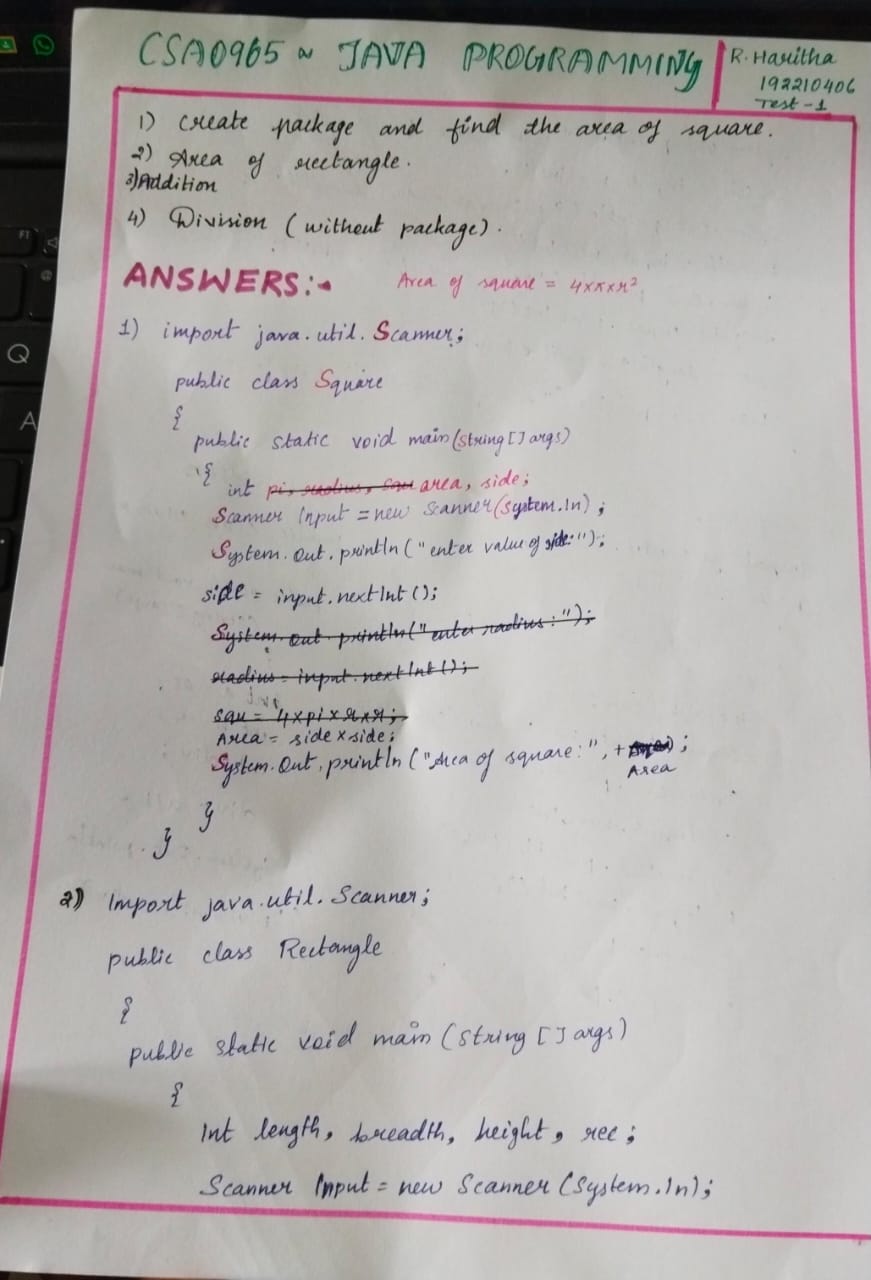 CSA0965 ~ JAVA PROGRAMMING
R. Haritha
192210406
Test-1
1) create package and find the area of square.
2) Area of rectangle.
3) Addition
4) Division (without package).
ANSWERS:-
Area of square = 4xπxr²
1) import java.util.Scanner;
public class Square
{
public static void main(string [] args)
{
int pi, radius, squ area, side;
Scanner Input = new Scanner(system.In);
System.Out.println("enter value of side:");
side = input.nextInt();
System.out.println("enter radius:");
radius = input.nextInt();
squ = 4xpixrxr;
Area = side x side;
System.Out.println("Area of square:", + Area ;
}
}
2) Import java.util.Scanner;
public class Rectangle
{
public static void main (string [] args)
{
Int length, breadth, height, rec;
Scanner Input = new Scanner (System.In);